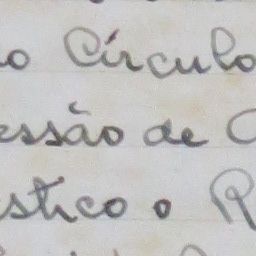 o Círculo
essão de
stico o R